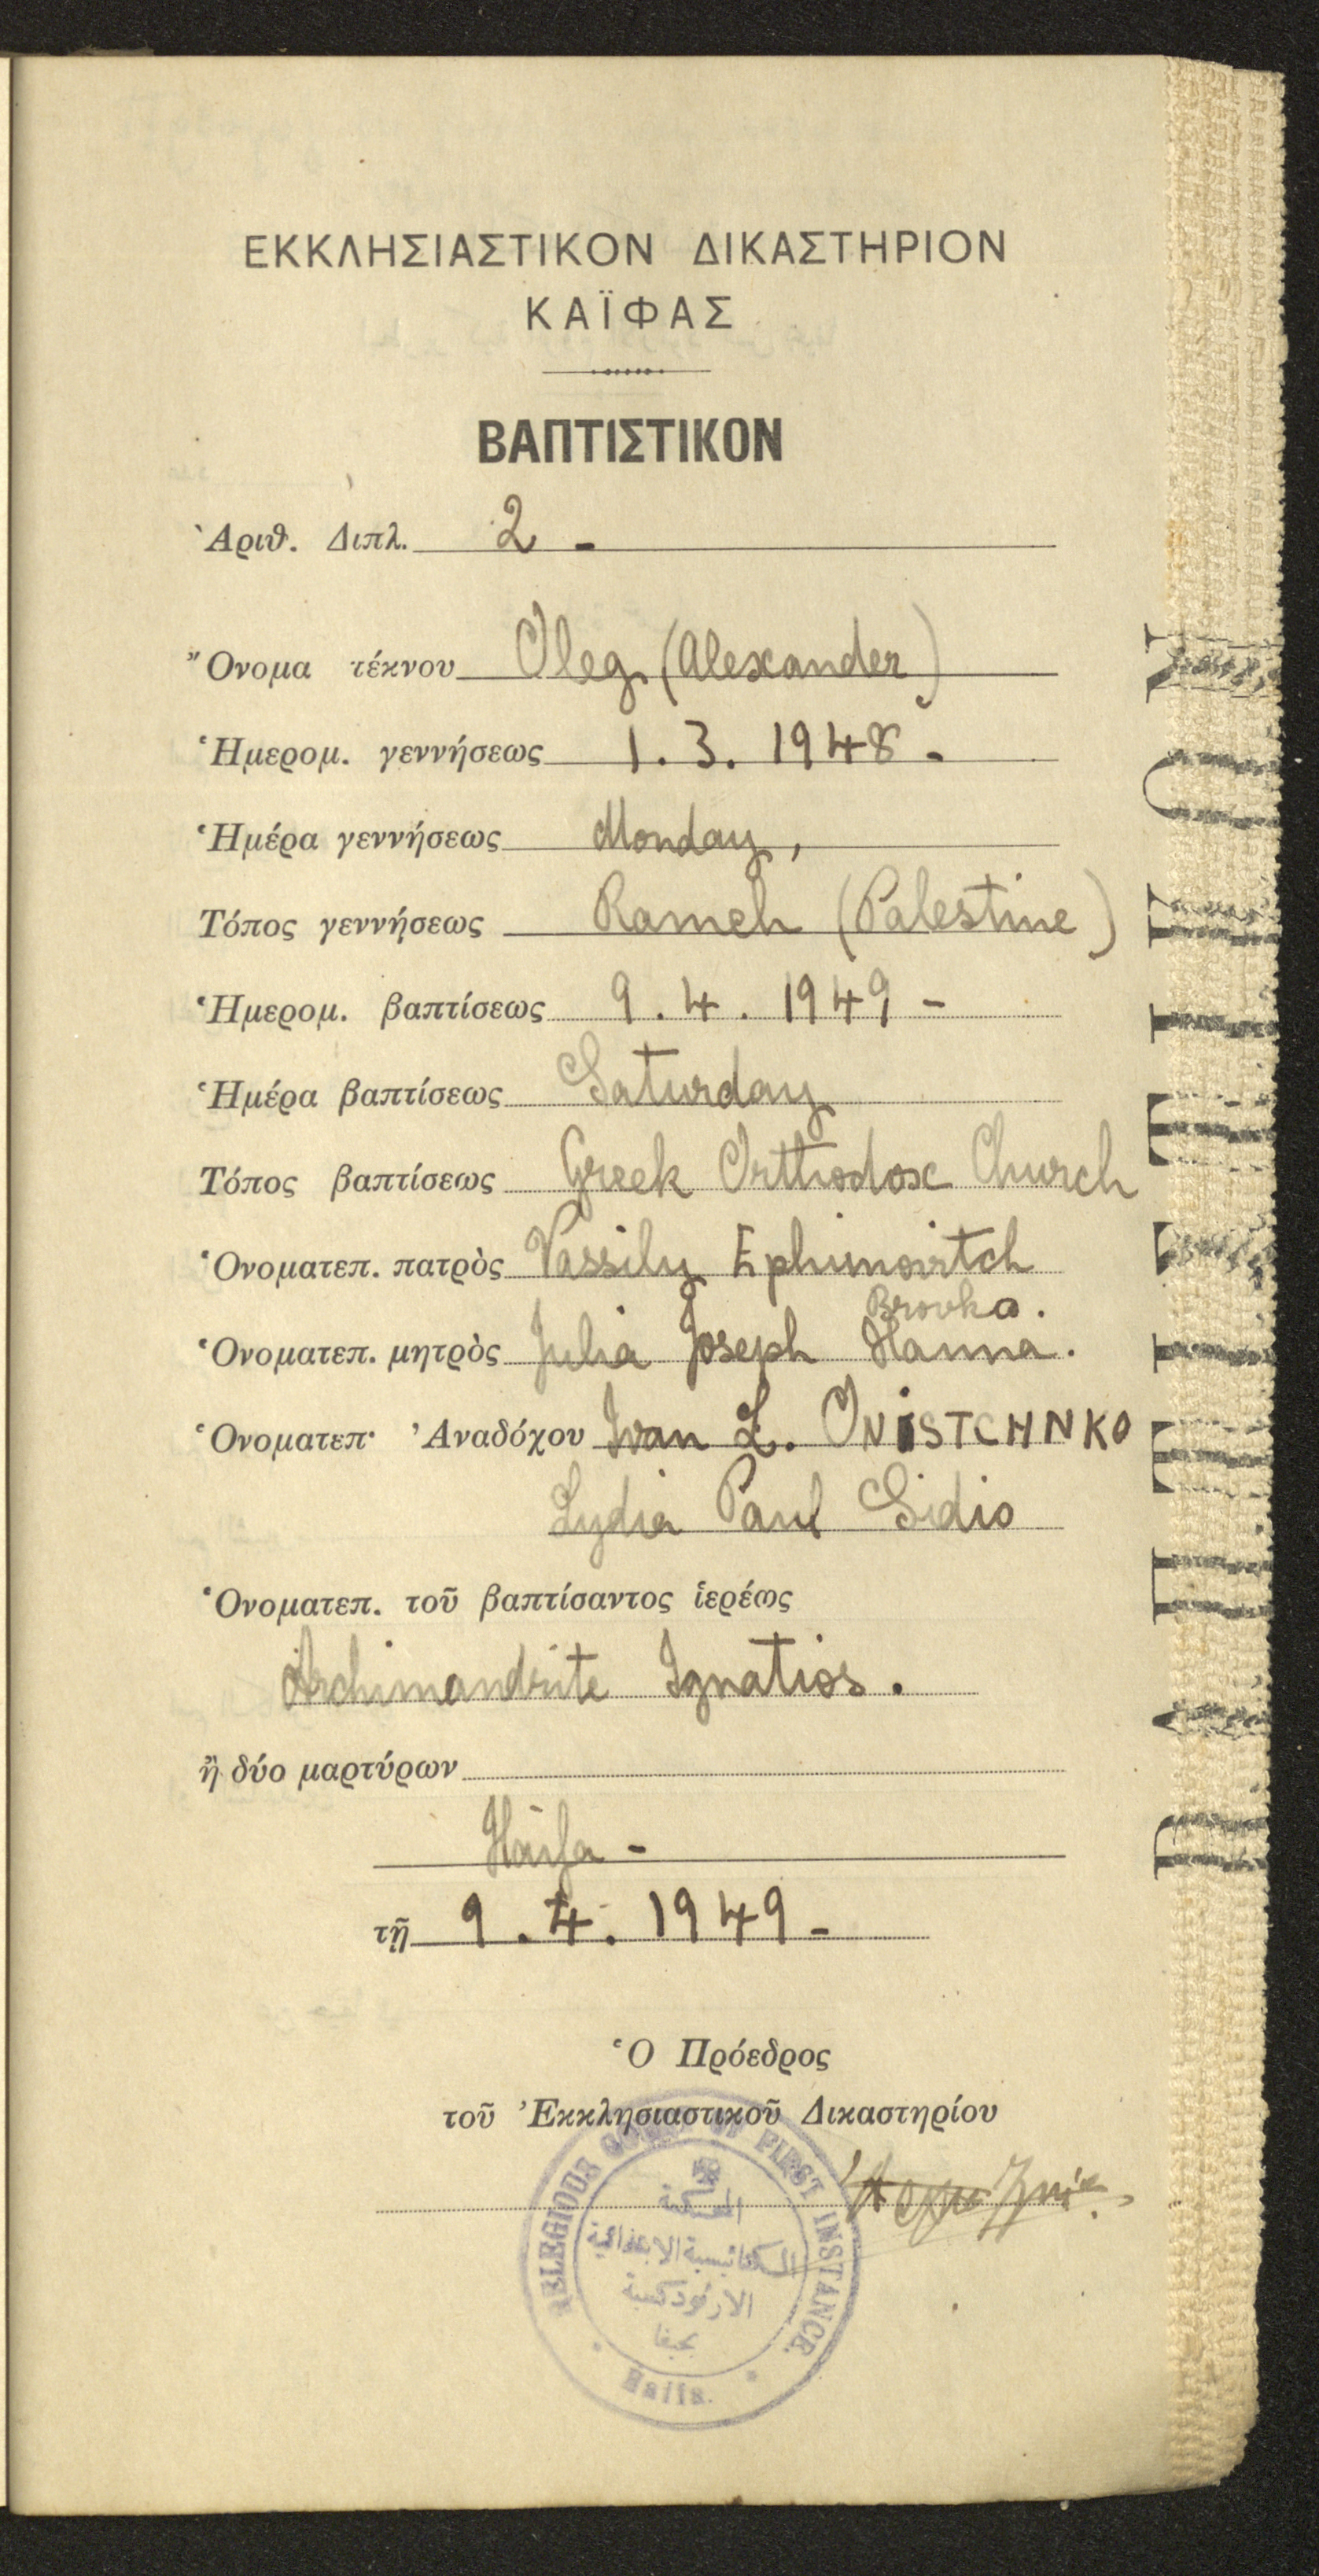 ΕΚΚΛΗΣΙΑΣΤΙΚΟΝ ΔΙΚΑΣΤΗΡΙΟΝ
ΚΑΪΦΑΣ
ΒΑΠΤΙΣΤΙΚΟΝ
Ἀριθ. Διπλ. 2 -
Ὄνομα τέκνου Oleg (Alexander)
Ἡμερομ. γεννήσεως 1. 3. 1948 -
Ἡμέρα γεννήσεως Monday,
Τόπος γεννήσεως Rameh (Palestine)
Ἡμερομ. βαπτίσεως 9. 4. 1949 -
Ἡμέρα βαπτίσεως Saturday
Τόπος βαπτίσεως Greek Orthodox Church
Ὀνοματεπ. πατρὸς Vassily Ephimovitch
Brovka.
Ὀνοματεπ. μητρὸς Julia Joseph Hanna.
Ὀνοματεπ· Ἀναδόχου Ivan L. ONiSTCHNKO
Lydia Paul Sidio
Ὀνοματεπ. τοῦ βαπτίσαντος ἱερέως
Archimandrite Ignatios.
ἢ δύο μαρτύρων
Haifa -
τῇ 9. 4. 1949 -
Ὁ Πρόεδρος
τοῦ Ἐκκλησιαστικοῦ Δικαστηρίου
RELEGIOUS COURT OF FIRST INSTANCE.
المحكمة
الكنائسية الابتدائية
الارثوذكسية
بحيفا
Haifa.